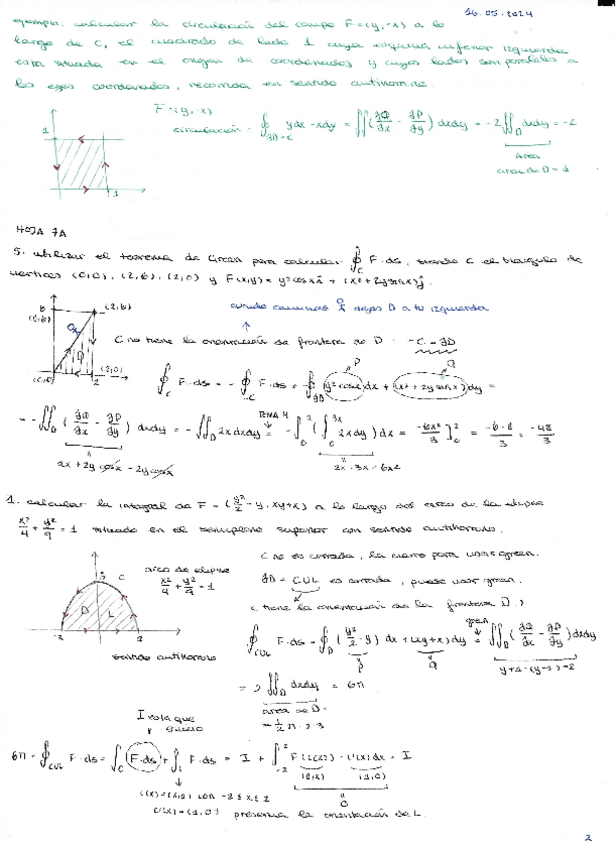 16.05.2024
ejemplo: calcular la circulación del campo F=(y,-x) a lo
largo de C, el cuadrado de lado 1 cuya esquina inferior izquierda
está situada en el origen de coordenadas y cuyos lados son paralelos a
los ejes coordenados, recorrida en sentido antihorario.
F=(y,-x)
circulación = ∮_{∂D=C} ydx-xdy = ∬(∂Q/∂x - ∂P/∂y) dxdy = -2∬_D dxdy = -2
área
área de D = 1
1
1
HOJA 7A
5. utilizar el teorema de Green para calcular ∮_C F·ds, siendo C el triángulo de
vértices (0,0), (2,6), (2,0) y F(x,y) = y²cosx i + (x²+2ysinx) j.
6
(0,6)
(2,6)
cuando caminas dejas D a tu izquierda
C no tiene la orientación de frontera de D. -C = ∂D
D
(2,0)
(0,0)
2
P
Q
∮_C F·ds = -∮_{-C} F·ds = -∮_{∂D} (y²cosx)dx + (x²+2ysinx)dy =
= -∬_D (∂Q/∂x - ∂P/∂y) dxdy = -∬_D 2xdxdy = -∫_0^2 (∫_0^{3x} 2xdy) dx = -6x³/3 ]_0^2 = -6·8/3 = -48/3
TEMA 4
2x+2y cosx - 2y cosx
2x·3x = 6x²
1. calcular la integral de F = (y²/2 - y, xy+x) a lo largo del arco de la elipse
x²/4 + y²/9 = 1 situado en el semiplano superior con sentido antihorario.
arco de elipse
x²/4 + y²/9 = 1
3
C
D
L
-2
2
sentido antihorario
C no es cerrada, la cierro para usar green.
∂D = CUL es cerrada, puedo usar green.
C tiene la orientación de la frontera D.
green
∮_{CUL} F·ds = ∮_D (y²/2 - y) dx + (xy+x)dy = ∬_D (∂Q/∂x - ∂P/∂y) dxdy
P
Q
y+1-(y-1) = 2
= 2∬_D dxdy = 6π
área de D =
= 1/2 π·2·3
I
6π = ∮_{CUL} F·ds = ∫_C F·ds + ∫_L F·ds = I + ∫_{-2}^{2} F(C(x))·C'(x)dx = I
(0,x)
(1,0)
0
C(x)=(x,0) con -2≤x≤2
C'(x)=(1,0) preserva la orientación de L.
2